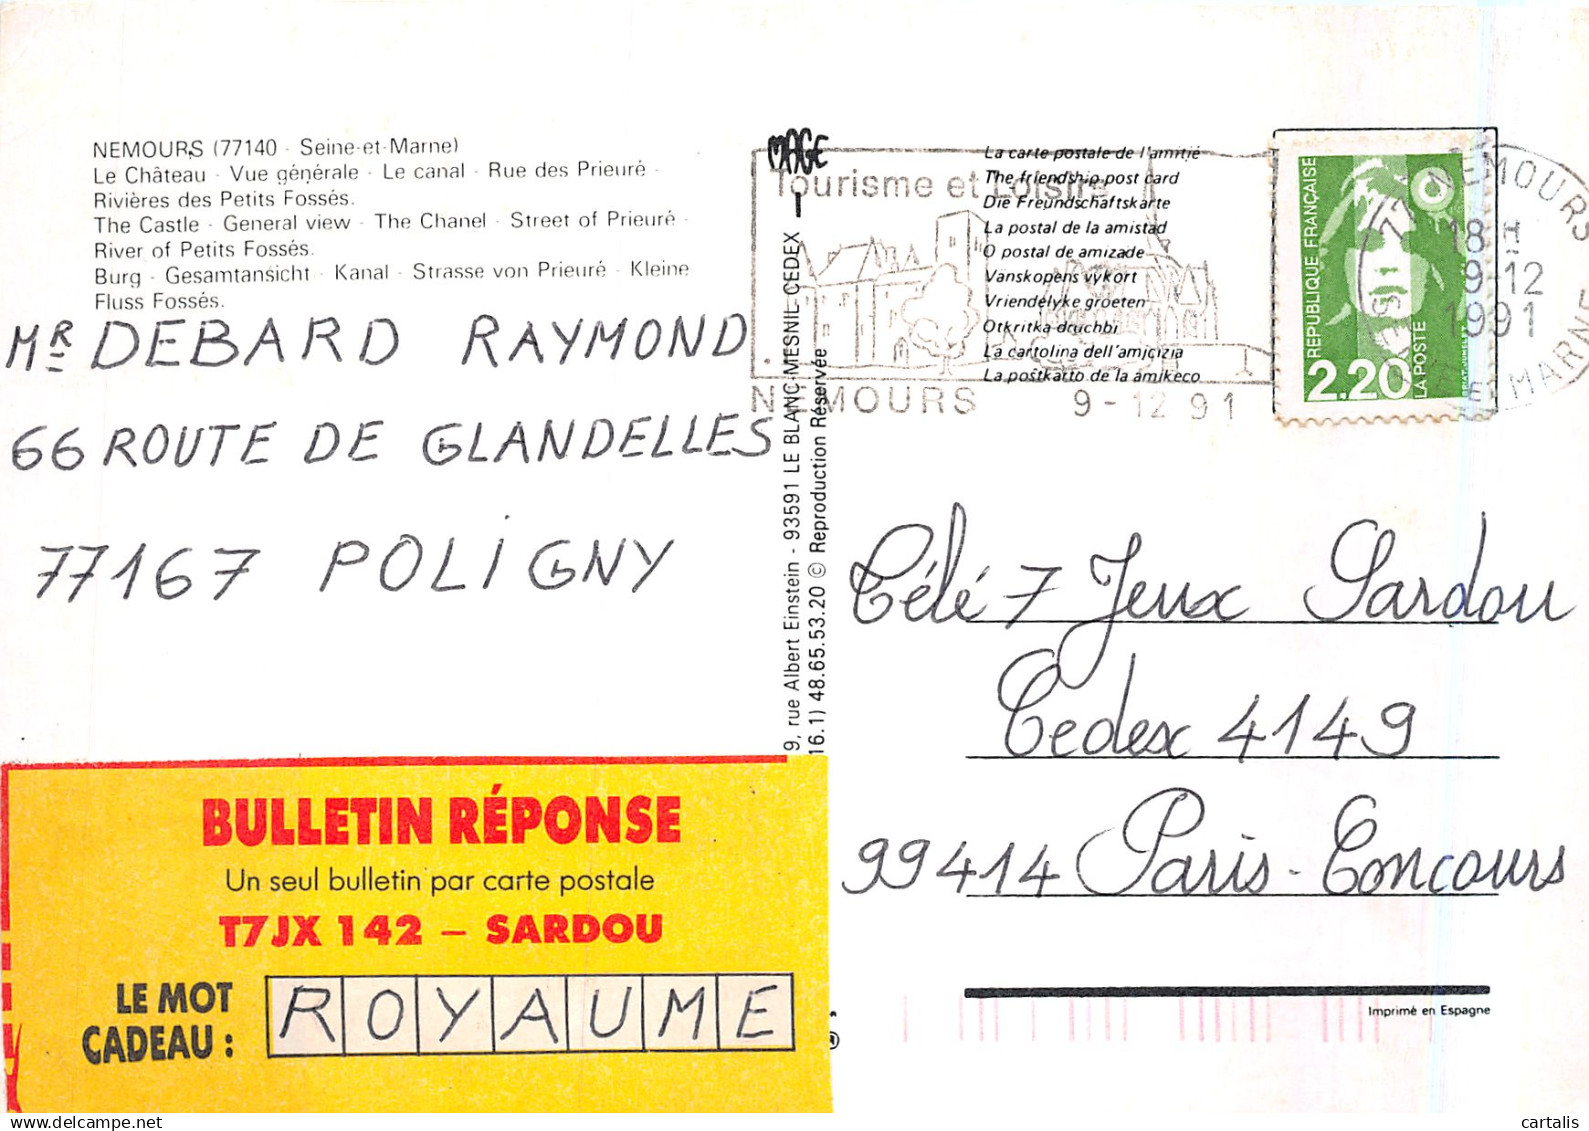 NEMOURS (77140 - Seine-et-Marne)
Le Château - Vue générale - Le canal - Rue des Prieuré -
Rivières des Petits Fossés.
The Castle - General view - The Chanel - Street of Prieuré -
River of Petits Fossés.
Burg - Gesamtansicht - Kanal - Strasse von Prieuré - Kleine
Fluss Fossés.
MR DEBARD RAYMOND
66 ROUTE DE GLANDELLES
77167 POLIGNY
MAGE
9, rue Albert Einstein - 93591 LE BLANC-MESNIL CEDEX
16.1) 48.65.53.20 © Reproduction Réservée
Tourisme et Loisirs
NEMOURS 9-12 91
La carte postale de l'amitié
The friendship post card
Die Freundschaftskarte
La postal de la amistad
O postal de amizade
Vanskopens vykort
Vriendelyke groeten
Otkritka druchbi
La cartolina dell'amicizia
La postkatto de la amikeco
REPUBLIQUE FRANÇAISE
2,20
LA POSTE
77 NEMOURS
18 H
9-12
1991
SEINE ET MARNE
Télé 7 Jeux Sardou
Cedex 4149
99414 Paris-Concours
BULLETIN RÉPONSE
Un seul bulletin par carte postale
T7JX 142 – SARDOU
LE MOT
CADEAU : ROYAUME
Imprimé en Espagne
cartalis